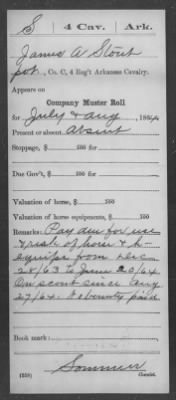 S 4 Cav. Ark.
James A Stout
pvt, Co. C, 4 Reg't Arkansas Cavalry.
Appears on
Company Muster Roll
for July & Aug, 1864
Present or absent Absent
Stoppage, $ 100 for
Due Gov't, $ 100 for
Valuation of horse, $ 100
Valuation of horse equipments, $ 100
Remarks: Pay due for use
& risk of horse & h-
Equipts from Dec
28/63 to June 20/64
On scout since Aug
27/64. No bounty paid
Book mark:
Sommer
(358) Copyist.